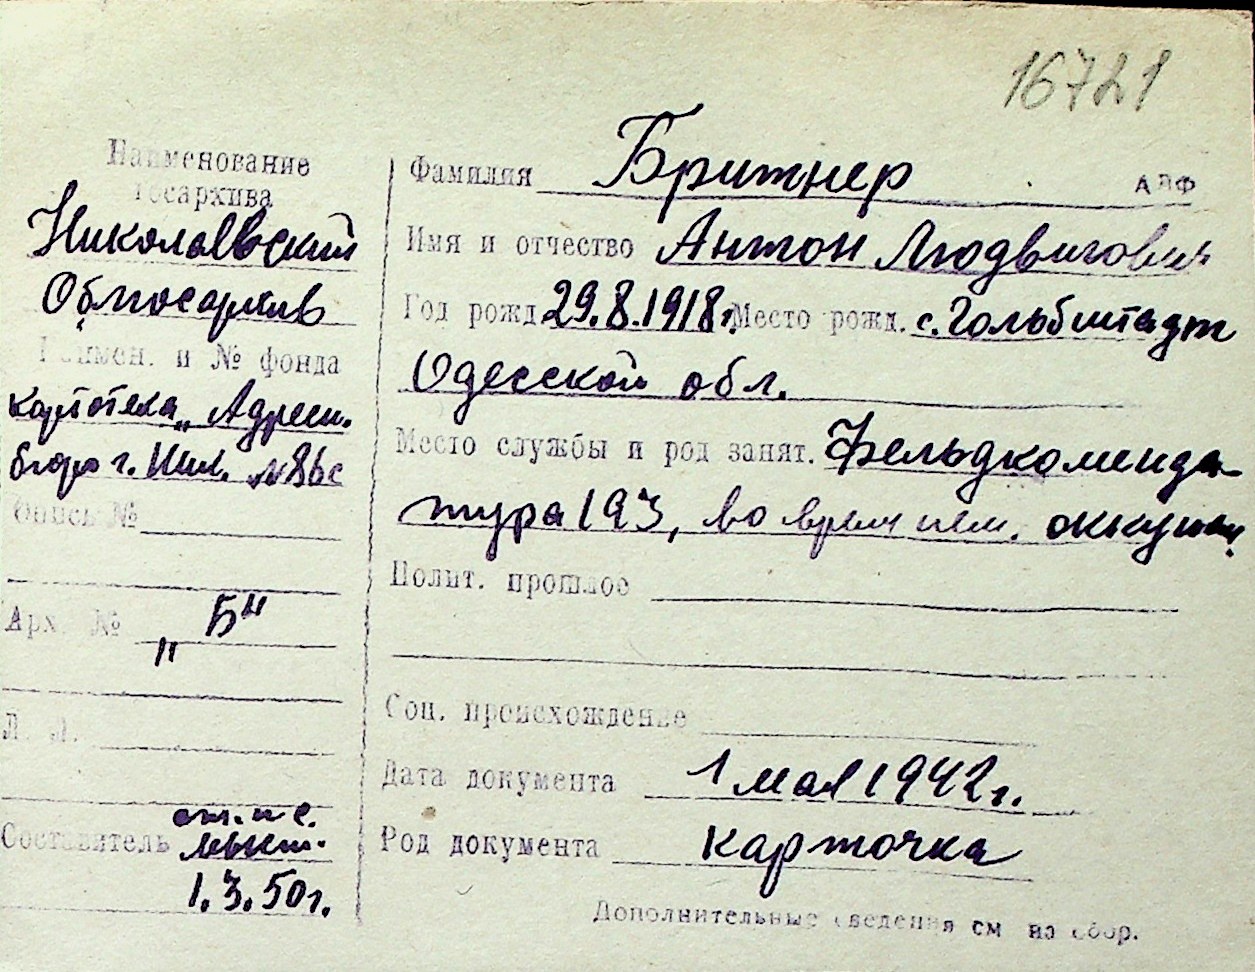 16721
Наименование
Госархива
Николаевский
Облгосархив
Наимен. и № фонда
картотека „Адресн.
бюро г. Ник. №86с
Опись №
Арх. №
„Б"
"
Л. Л.
Составитель ст. н. с.
1.3.50г.
Фамилия Бритнер
Имя и отчество Антон Людвигович
Год рожд. 29.8.1918г. Место рожд. с. Гольбштадт
Одесской обл.
Место службы и род занят. Фельдкоменда-
тура 193, во время нем. оккупац.
Полит. прошлое
Соц. происхождение
Дата документа 1 мая 1942г.
Род документа карточка
Дополнительные сведения см на обор.